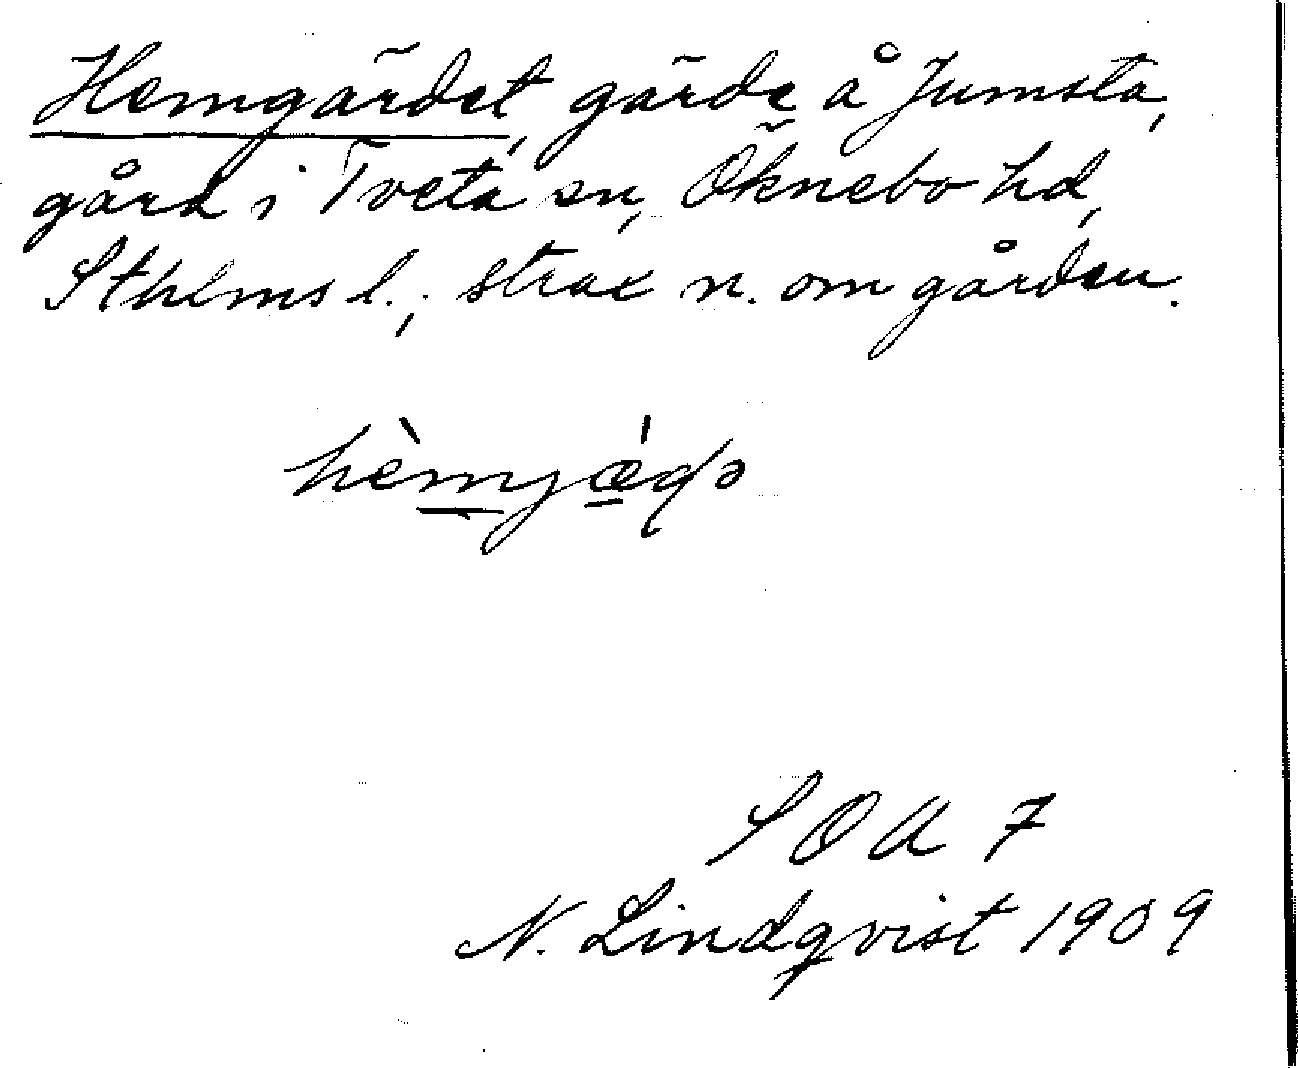 Hemgärdet, gärde å Jumsta,
gård i Tveta sn, Öknebo hd,
Sthlms l.; strax n. om gården.
SOA 7
N. Lindqvist 1909